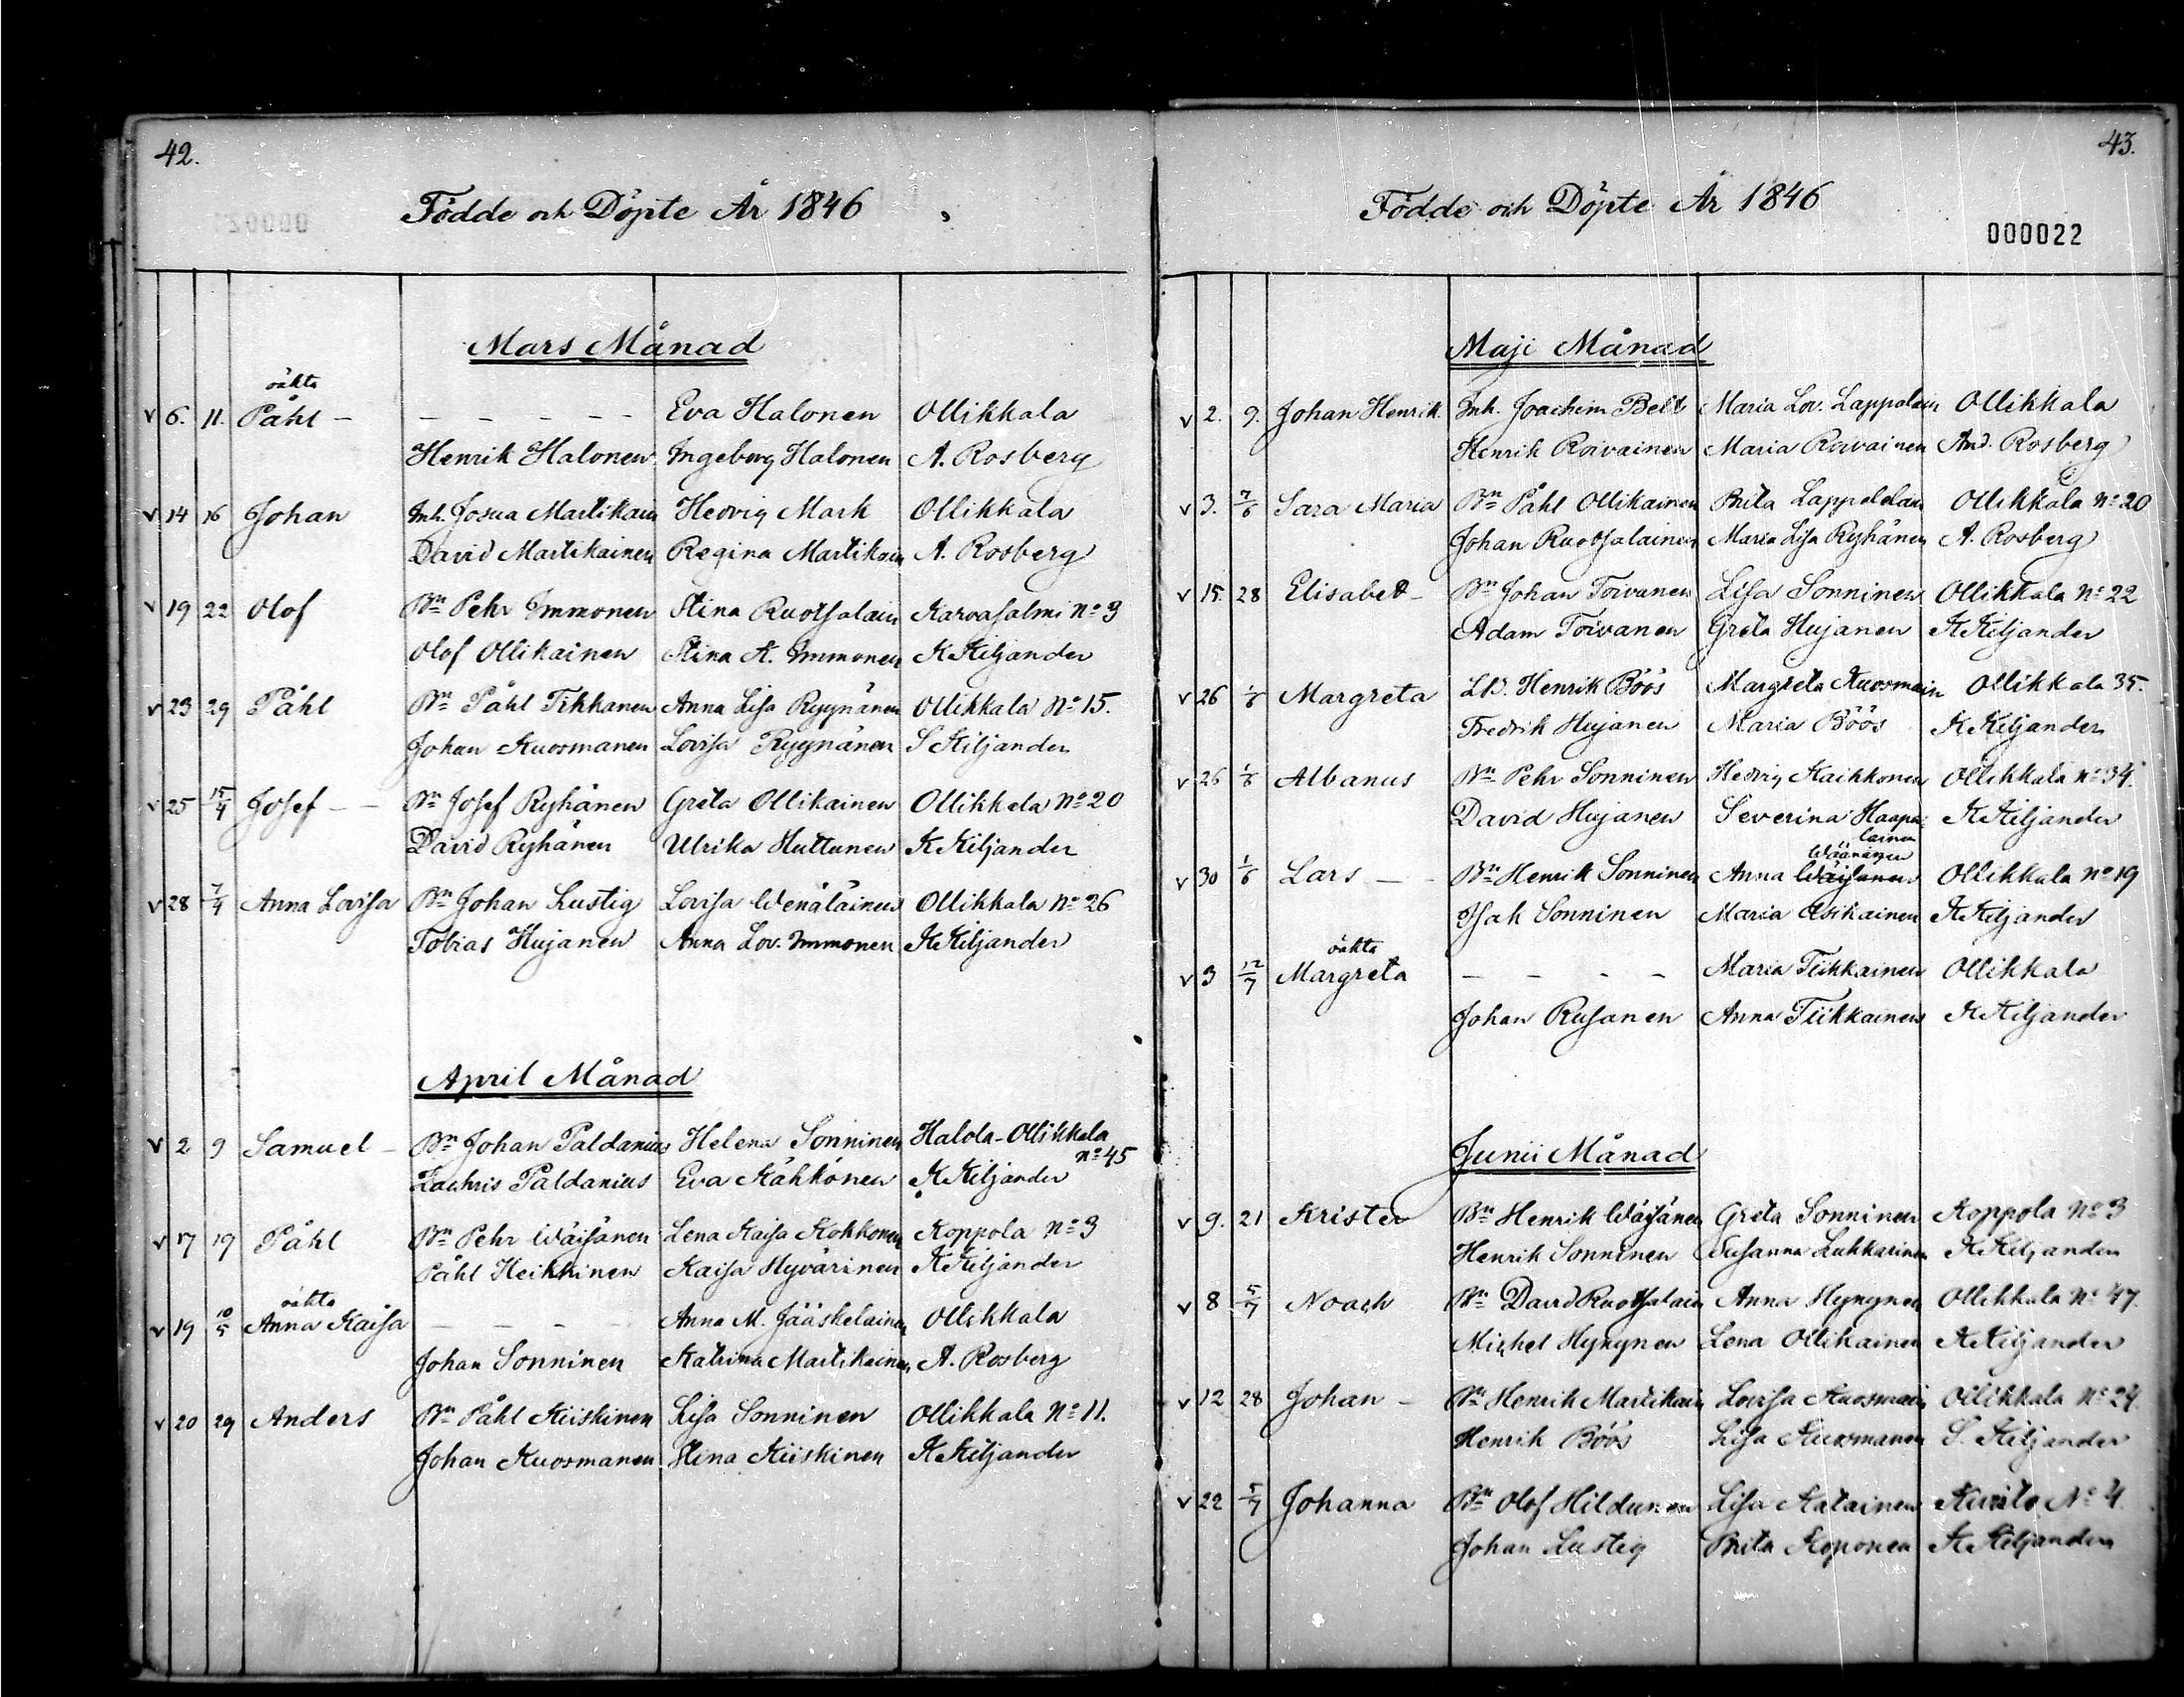 42.
Födde och Döpte År 1846
Mars Månad
oäkta
v 6. 11. Påhl – – – – – – Eva Halonen Ollikkala
Henrik Halonen Ingeborg Halonen A. Rosberg
v 14 16 Johan Inh. Josua Martikain Hedvig Mark Ollikkala
David Martikainen Regina Martikain A. Rosberg
v 19 22 Olof Bn Pehr Immonen Stina Ruotsalain Karvasalmi No 3
Olof Ollikainen Stina K. Immonen K Kiljander
v 23 29 Påhl Bn Påhl Tikkanen Anna Lisa Ryynänen Ollikkala No 15.
Johan Kuosmanen Lovisa Ryynänen S Kiljander
v 25 15/4 Josef – – Bn Josef Ryhänen Greta Ollikainen Ollikkala No 20
David Ryhänen Ulrika Huttunen K Kiljander
v 28 7/4 Anna Lovisa Bn Johan Lustig Lovisa Wenäläinen Ollikkala No 26
Tobias Hujanen Anna Lov. Immonen K Kiljander
April Månad
v 2 9 Samuel – Bn Johan Paldanius Helena Sonninen Halola-Ollikkala
No 45
Zachris Paldanius Eva Kähkönen K Kiljander
v 17 19 Påhl Bn Pehr Wäisänen Lena Kaisa Kokkonen Koppola No 3
Påhl Heikkinen Kaisa Hyvärinen K Kiljander
oäkta
v 19 10/5 Anna Kaisa – – – – Anna M. Jääskelainen Ollikkala
Johan Sonninen Katrina Martikainen A. Rosberg
v 20 29 Anders Bn Påhl Kiiskinen Lisa Sonninen Ollikkala No 11.
Johan Kuosmanen Stina Kiiskinen K Kiljander
43.
Födde och Döpte År 1846
000022
Maji Månad
v 2. 9. Johan Henrik Inh. Joachim Belt Maria Lov. Lappalain Ollikkala
Henrik Roivainen Maria Roivainen And. Rosberg
v 3. 7/6 Sara Maria Bn Påhl Ollikainen Brita Lappalelain Ollikkala No 20
Johan Ruotsalainen Maria Lisa Ryhänen A. Rosberg
v 15. 28 Elisabet – Bn Johan Toivanen Lisa Sonninen Ollikkala No 22
Adam Toivanen Greta Hujanen K Kiljander
v 26 1/6 Margreta LB. Henrik Böös Margreta Kuosmain Ollikkala 35.
Fredrik Hujanen Maria Böös K Kiljander
v 26 1/6 Albanus Bn Pehr Sonninen Hedvig Kaihkonen Ollikkala No 34.
David Hujanen Severina Haapa K Kiljander
lainen
Wäänänen
v 30 1/6 Lars – – Bn Henrik Sonninen Anna Wäisanen Ollikkala No 19
Isak Sonninen Maria Asikainen K Kiljander
oäkta
v 3 12/7 Margreta – – – – Maria Tiikkainen Ollikkala
Johan Rusanen Anna Tiikkainen K Kiljander
Junii Månad
v 9. 21 Krister Bn Henrik Wäisänen Greta Sonninen Koppola No 3
Henrik Sonninen Susanna Lukkarinen K Kiljander
v 8 5/7 Noach Bn David Ruotsalain Anna Hynynen Ollikkala No 47.
Michel Hynynen Lena Ollikainen K Kiljander
v 12 28 Johan – Bn Henrik Martikain Lovisa Kuosmain Ollikkala No 24.
Henrik Böös Lisa Kuosmanen S. Kiljander
v 22 5/7 Johanna Bn Olof Hildunen Lisa Katainen No 4.
Johan Lustig Brita Koponen K Kiljander